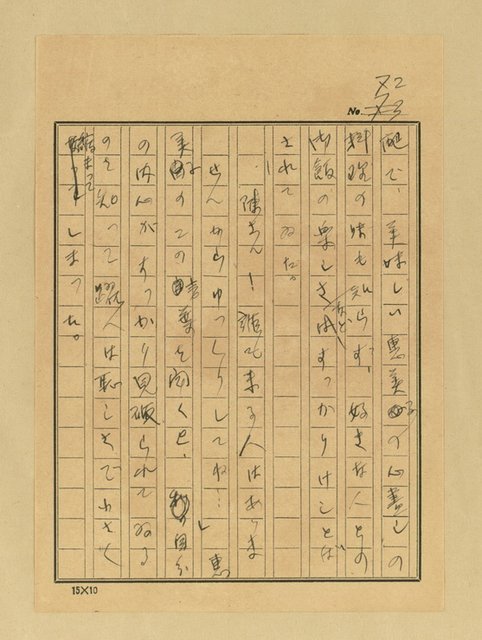 No. 72
配で、美味しい恵美子の心尽しの
料理の味も知らず、好きな人との
御飯の楽しさなどすっかりけしとば
されてゐた。
「陳さん！誰も来る人はありま
せんからゆっくりしてね…」恵
美子のこの言葉を聞くと、自分
の内心がすっかり見破られてゐる
のを知って躍人は恥しさで
しまった。
15×10